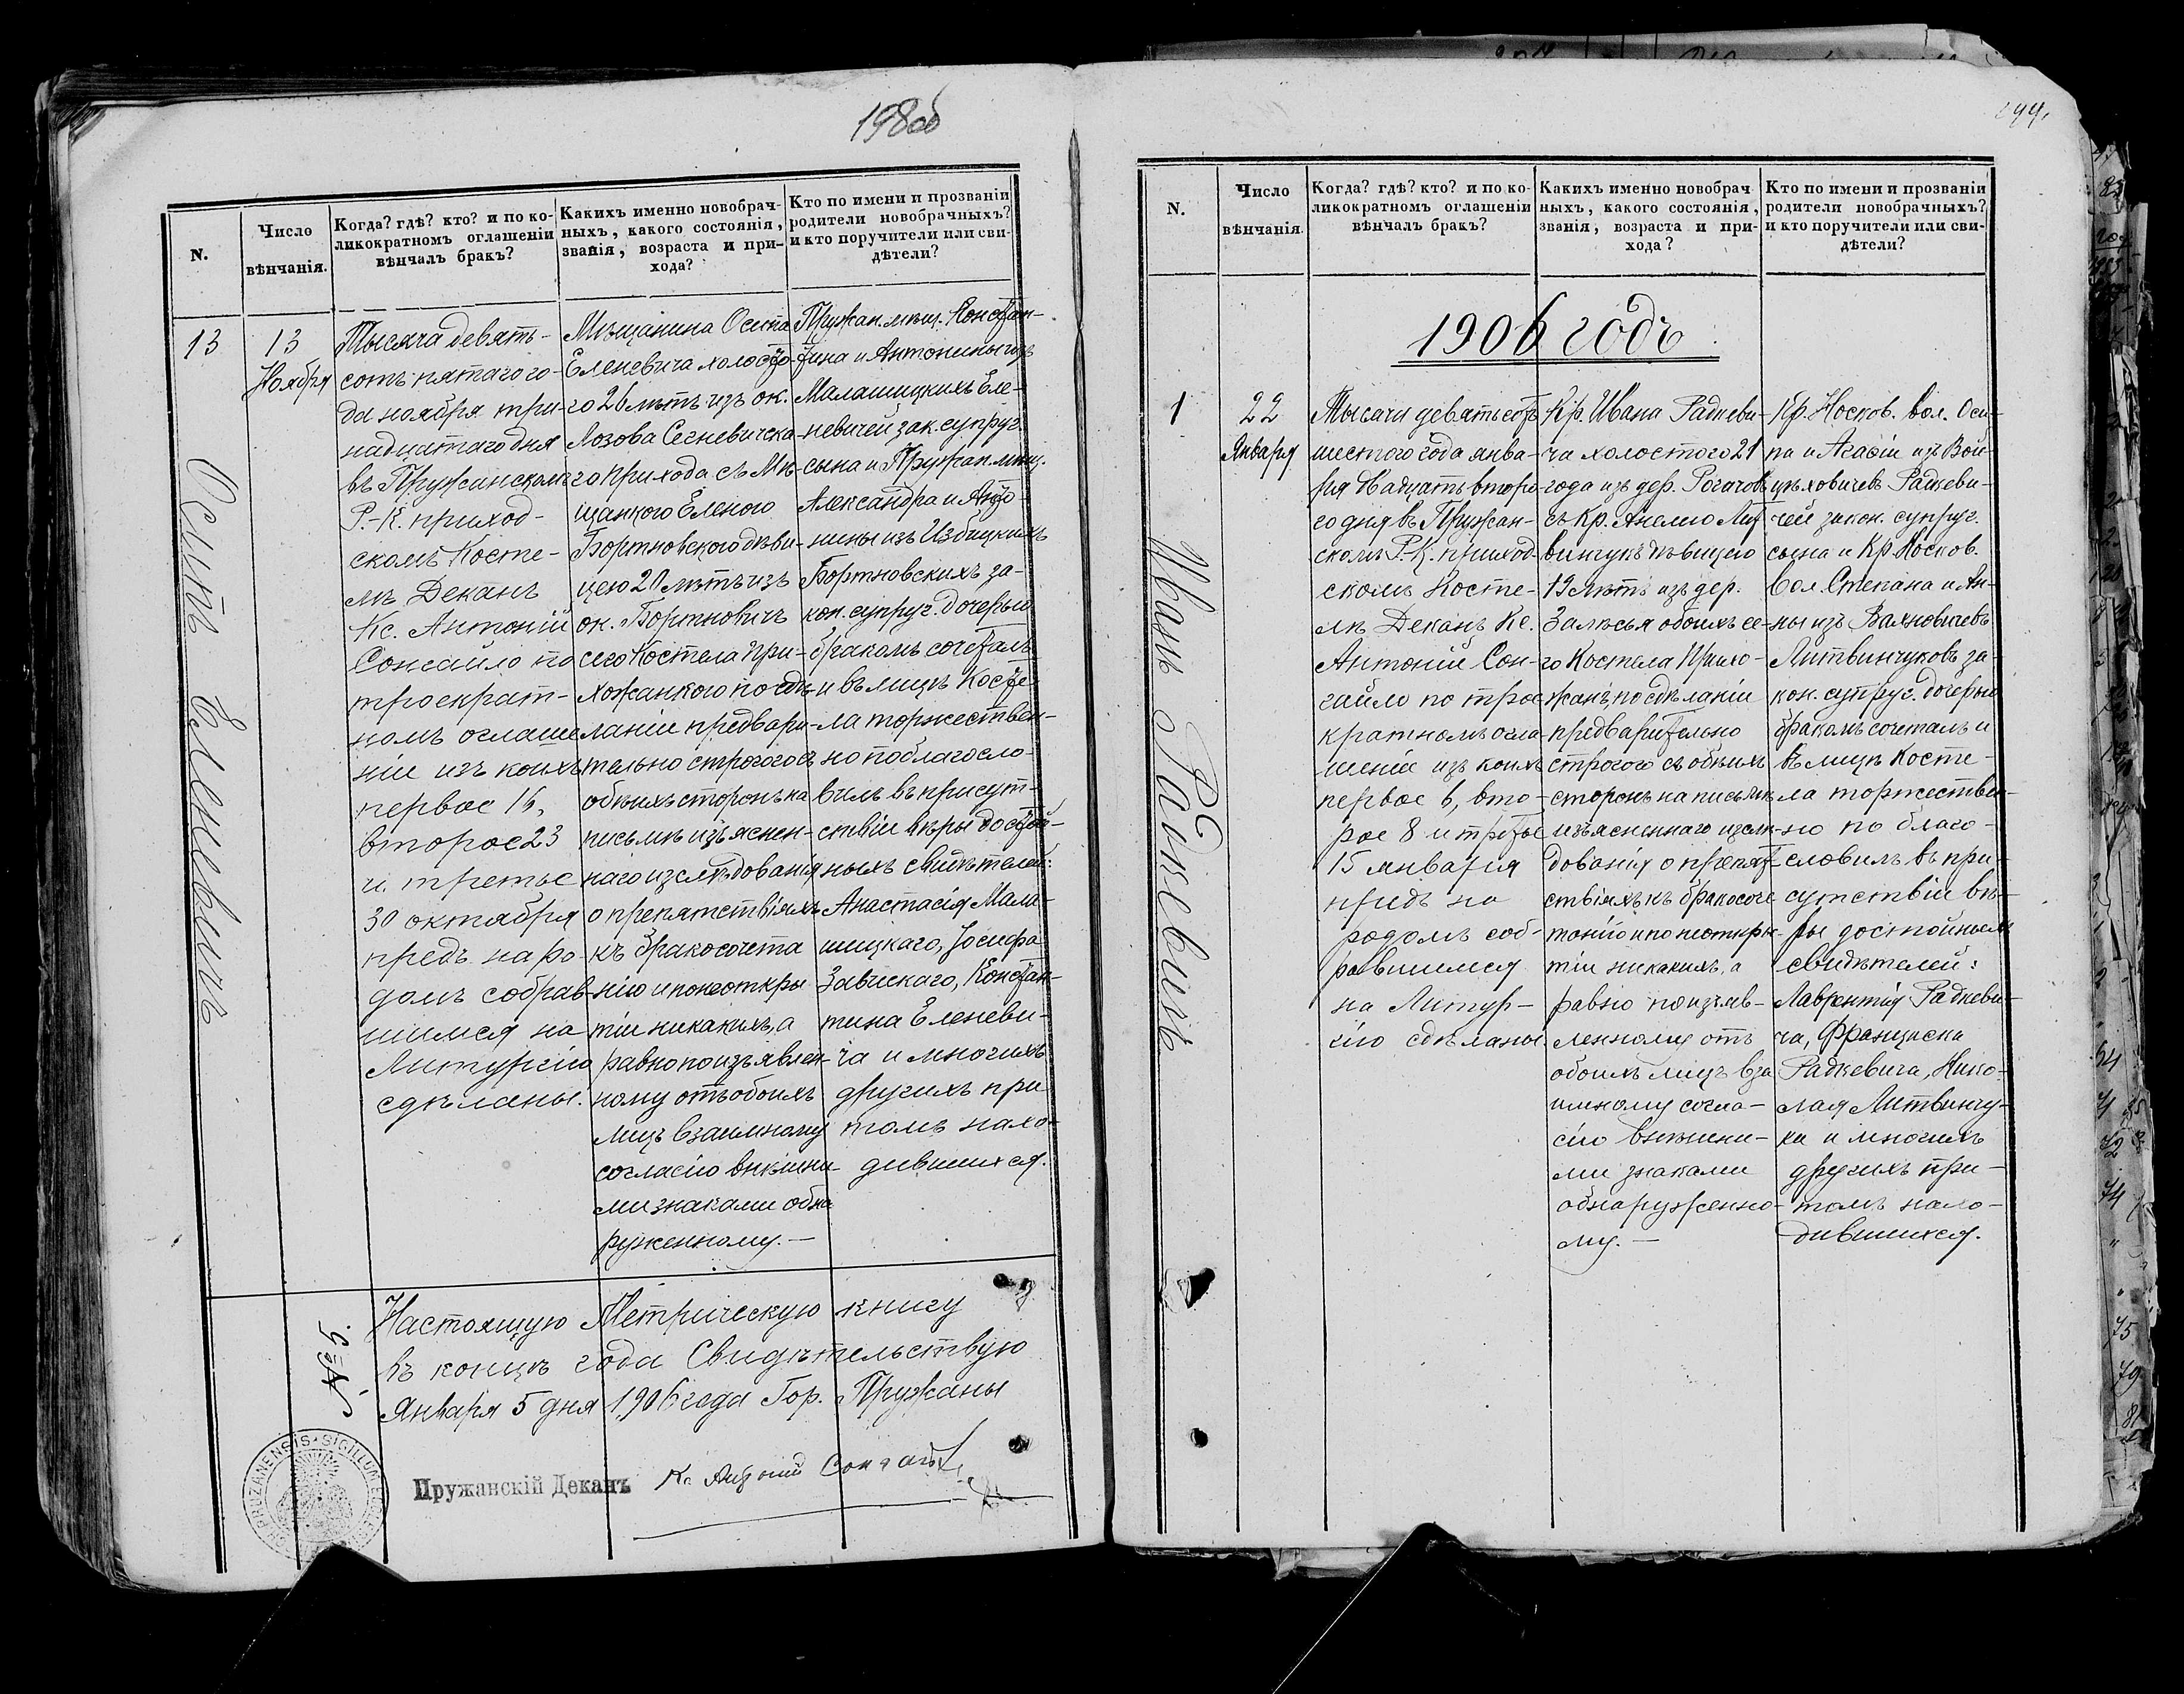 198об
N.
Число
вѣнчанія.
Когда? гдѣ? кто? и по ко-
ликократномъ оглашеніи
вѣнчалъ бракъ?
Какихъ именно новобрач-
ныхъ, какого состоянія,
званія, возраста и при-
хода?
Кто по имени и прозванію
родители новобрачныхъ?
и кто поручители или сви-
дѣтели?
13
13
Ноября
Осипъ Еленевичъ
Тысяча девять-
сотъ пятаго го-
да ноября три-
надцатаго дня
въ Пружанскомъ
Р.-К. приход-
скомъ Косте-
лѣ Деканъ
Кс. Антоній
Сонгайло по
троекрат-
номъ оглаше
ніи изъ коихъ
первое 16,
второе 23
и третье
30 октября
предъ наро-
домъ собрав-
шимся на
Литургію
сдѣланы.
Мѣщанина Осипа
Еленевича холосто-
го 26 лѣтъ изъ ок.
Лозова Сегневичска-
го прихода съ Мѣ-
щанкою Еленою
Бортновского дѣви-
цею 20 лѣтъ изъ
ок. Бортновичъ
сего Костела при-
хожанкою по сдѣ-
ланіи предвари-
тельно строгого съ
обѣихъ сторонъ на
письмѣ изъяснен-
наго изслѣдованія
о препятствіяхъ
къ бракосочета
нію и по неоткры
тіи никакихъ, а
равно по изъявлен-
ному отъ обоихъ
лицъ взаимному
согласію внѣшни-
ми знаками обна
руженному.—
Пружан. мѣщ. Констан-
тина и Антонины изъ
Малашицкихъ Еле-
невичей зак. супруг.
сына и Пружан. мѣщ.
Александра и Анто-
нины изъ Избицкихъ
Бортновскихъ за-
кон. супруг. дочерью
бракомъ сочеталъ
и въ лицѣ Косте-
ла торжествен-
но поблагосло-
вилъ въ присут-
ствіи вѣры достой-
ныхъ свидѣтелей:
Анастасія Мала-
шицкаго, Іосифа
Завискаго, Констан-
тина Еленеви-
ча и многихъ
другихъ при
томъ нахо-
дившихся.
Настоящую Метрическую книгу
въ концѣ года Свидѣтельствую
Января 5 дня 1906 года Гор. Пружаны
Пружанскій Деканъ
Кс Антоній Сонгайло
PRUZANENSIS · SIGILLUM
N.
Число
вѣнчанія.
Когда? гдѣ? кто? и по ко-
ликократномъ оглашеніи
вѣнчалъ бракъ?
Какихъ именно новобрач-
ныхъ, какого состоянія,
званія, возраста и при-
хода?
Кто по имени и прозваніи
родители новобрачныхъ?
и кто поручители или сви-
дѣтели?
1906 годъ
1
22
Января
Иванъ Радкевичъ
Тысячи девятьсотъ
шестого года янва-
ря двадцать второ-
го дня въ Пружан-
скомъ Р.-К. приход-
скомъ Косте-
лѣ Деканъ Кс.
Антоній Сон-
гайло по трое-
кратномъ огла-
шеніи изъ коихъ
первое 6, вто-
рое 8 и третье
15 января
предъ на
родомъ соб-
равшимся
на Литур-
гію сдѣланы
Кр. Ивана Радкеви-
ча холостого 21
года изъ дер. Рогачовъ
съ Кр. Анелею Лит
винчукъ дѣвицею
19 лѣтъ изъ дер.
Залѣсья обоихъ се-
го Костела прихо-
жанъ, по сдѣланіи
предварительно
строгого съ обѣихъ
сторонъ на письмѣ
изъясненнаго изслѣ-
дованія о препят-
ствіяхъ къ бракосоче
танію и по неоткры-
тіи никакихъ, а
равно по изъяв-
ленному отъ
обоихъ лицъ вза
имному согла-
сію внѣшни-
ми знаками
обнаруженно-
му.—
Кр. Носков. вол. Оси-
па и Агафіи изъ Вой-
цѣховичевъ Радкеви-
чей закон. супруг.
сына и Кр. Носков.
вол. Степана и Ан-
ны изъ Вахновичевъ
Литвинчуковъ за-
кон. супруг. дочерью
бракомъ сочеталъ и
въ лицѣ Косте-
ла торжествен-
но по благо-
словилъ въ при-
сутствіи вѣ-
ры достойныхъ
свидѣтелей:
Лаврентія Радкеви-
ча, Франциска
Радкевича, Нико-
лая Литвинчу-
ка и многихъ
другихъ при-
томъ нахо-
дившихся.